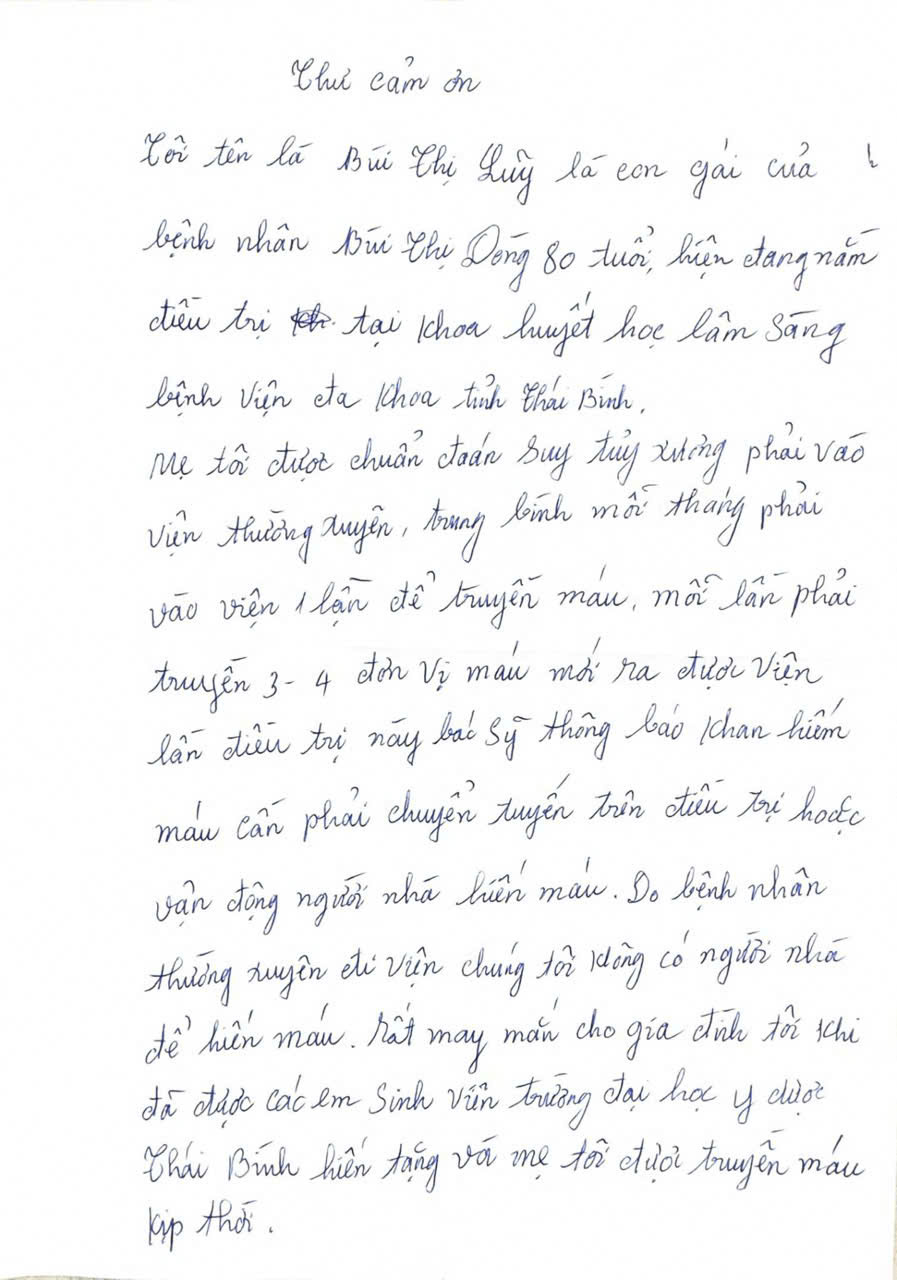 Thư cảm ơn
Tôi tên là Bùi Thị Luỹ là con gái của
bệnh nhân Bùi Thị Dòng 80 tuổi, hiện đang nằm
điều trị tại khoa huyết học lâm sàng
bệnh viện đa khoa tỉnh Thái Bình.
Mẹ tôi được chuẩn đoán suy tủy xương phải vào
viện thường xuyên, trung bình mỗi tháng phải
vào viện 1 lần để truyền máu, mỗi lần phải
truyền 3-4 đơn vị máu mới ra được viện
lần điều trị này bác sỹ thông báo khan hiếm
máu cần phải chuyển tuyến trên điều trị hoặc
vận động người nhà hiến máu. Do bệnh nhân
thường xuyên đi viện chúng tôi không có người nhà
để hiến máu. Rất may mắn cho gia đình tôi khi
đã được các em sinh viên trường đại học y dược
Thái Bình hiến tặng và mẹ tôi được truyền máu
kịp thời.